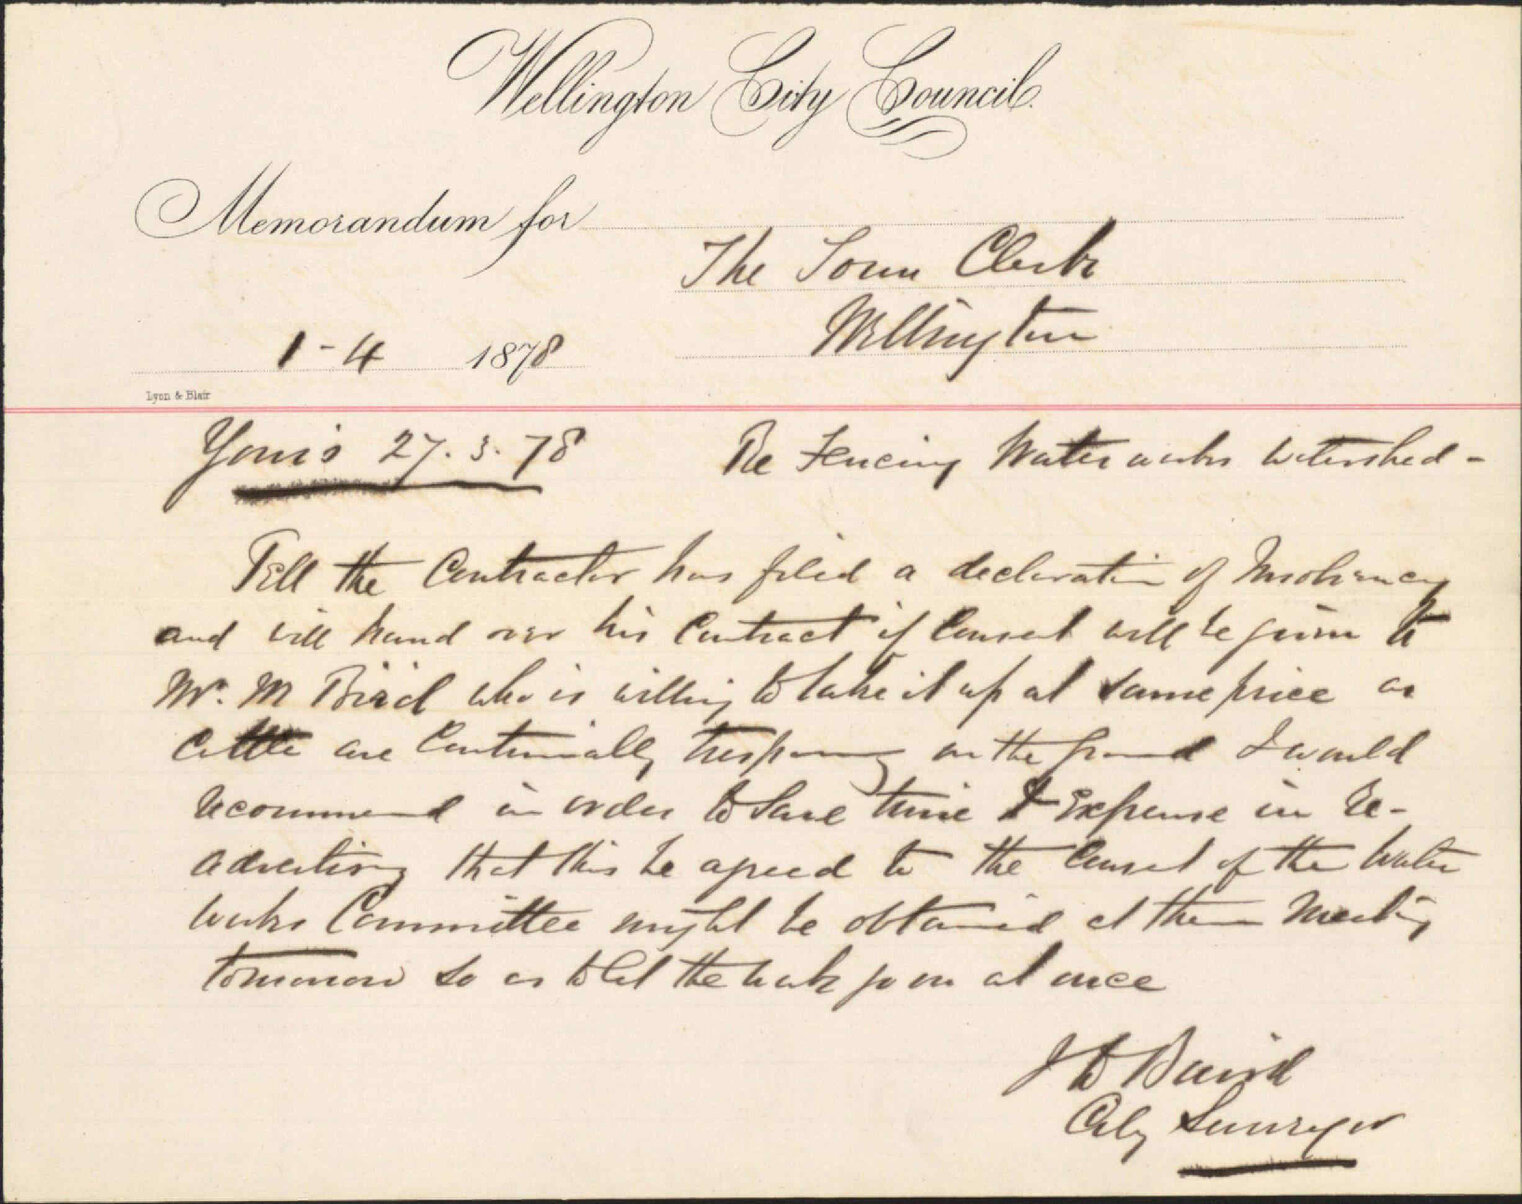 Wellington City Council.
Memorandum for
The Town Clerk
Wellington
1-4 1878
Lyon & Blair
Yours 27.3.78 Re Fencing Water works watershed -
Tell the Contractor has filed a declaration of Insolvency
and will hand over his Contract if Consent will be given to
Mr. M Baird who is willing to take it up at same price as
Cattle are Continually trespassing on the ground I would
recommend in order to save time & Expense in Re-
advertising that this be agreed to the Consent of the Water
works Committee might be obtained at their Meeting
tomorrow so as to let the work go on at once
J D Baird
City Surveyor